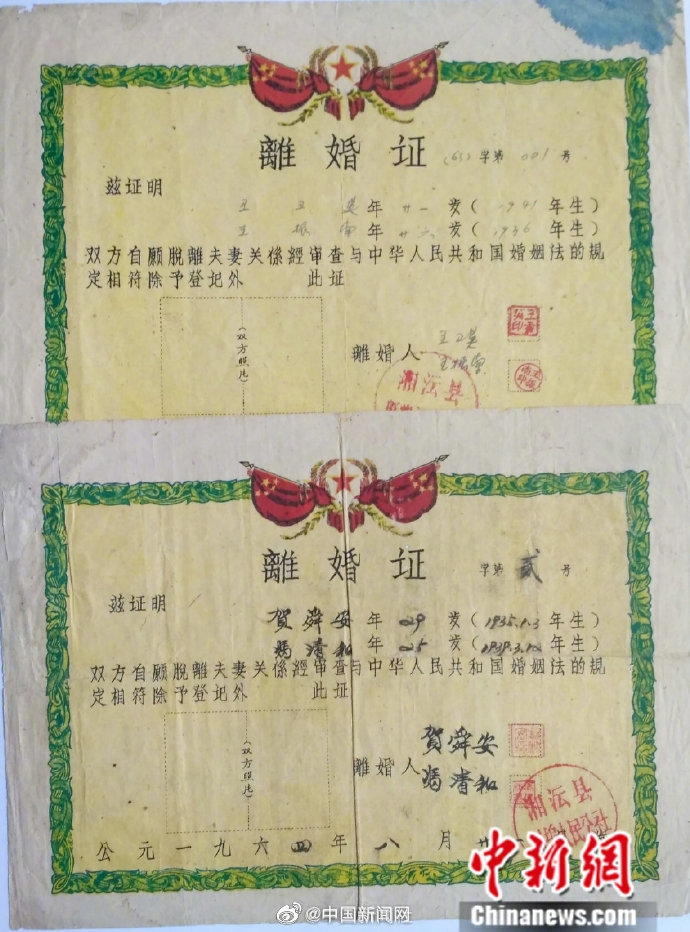 離婚证
(63) 字第 001 号
兹证明
王卫英 年廿一岁(1941年生)
王振南 年廿六岁(1936年生)
双方自願脫離夫妻关係經审查与中华人民共和国婚姻法的規
定相符除予登记外 此证
(双方照片)
離婚人 王卫英
王振南
湘沄县
離婚证
字第 貳 号
兹证明
賀舜安 年 29 岁(1935.1.3年生)
馮清和 年 25 岁(1939.3.12年生)
双方自願脫離夫妻关係經审查与中华人民共和国婚姻法的規
定相符除予登记外 此证
(双方照片)
離婚人 賀舜安
馮清和
湘沄县
人民公社
公元一九六四年八月廿
中新網
@中国新闻网
Chinanews.com